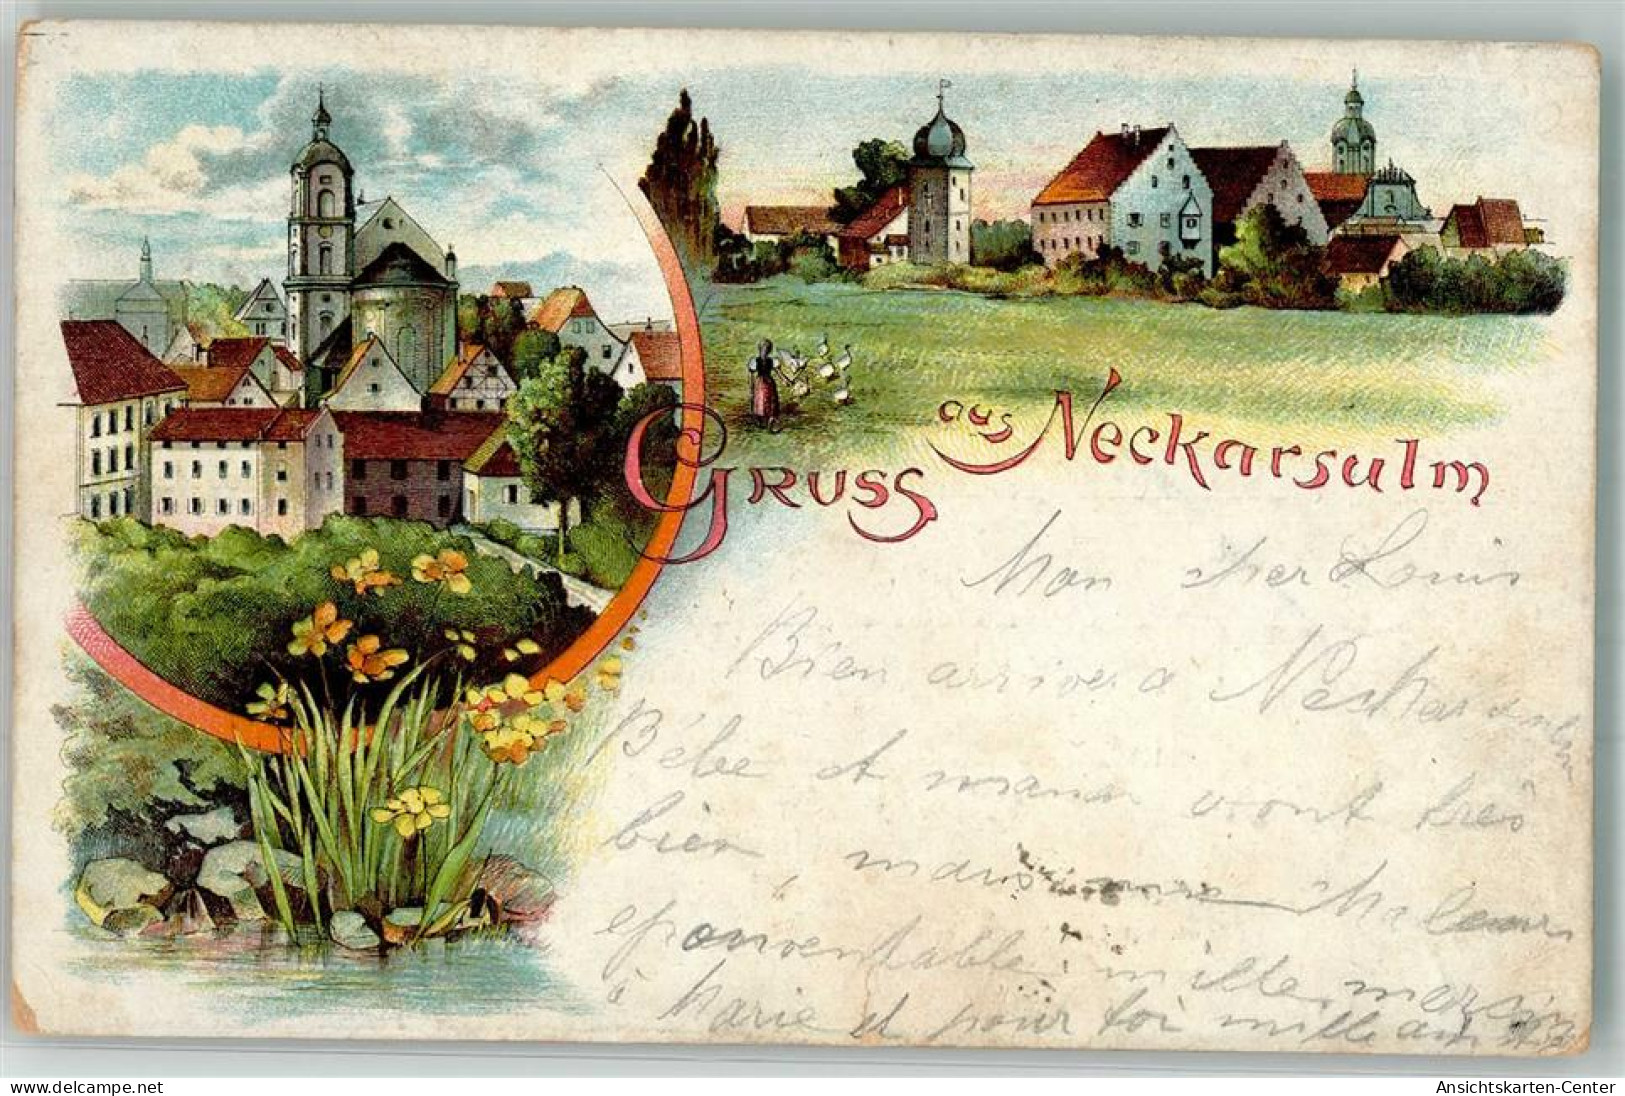 Gruss aus Neckarsulm
Mon cher Louis
Bien arrivée a
Bébé et maman vont très
bien, mais
épouvantable, mille
à Marie et pour toi mille
www.delcampe.net
Ansichtskarten-Center